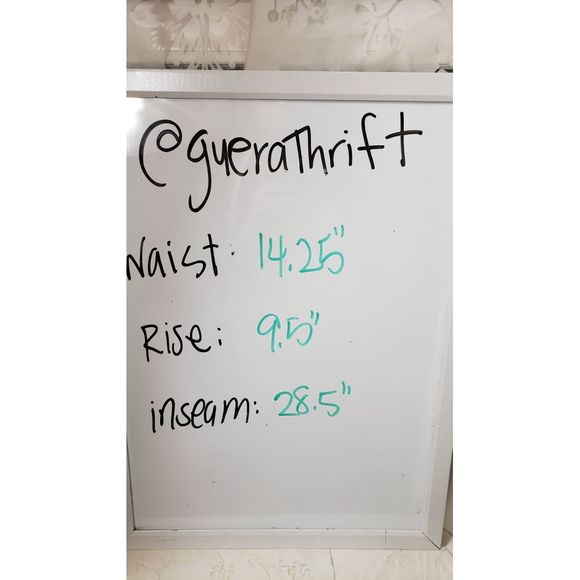 @gueraThrift
Waist: 14.25"
Rise: 9.5"
inseam: 28.5"